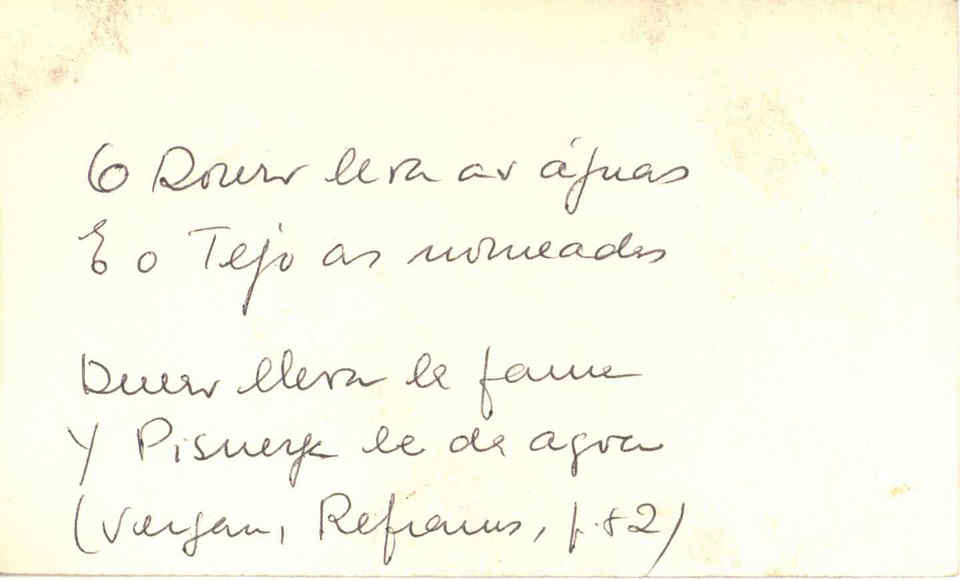 O Douro leva as águas
E o Tejo as nomeadas
Duero lleva la fama
Y Pisuerga le da agoa
(Vergara, Refranes, p. 82)